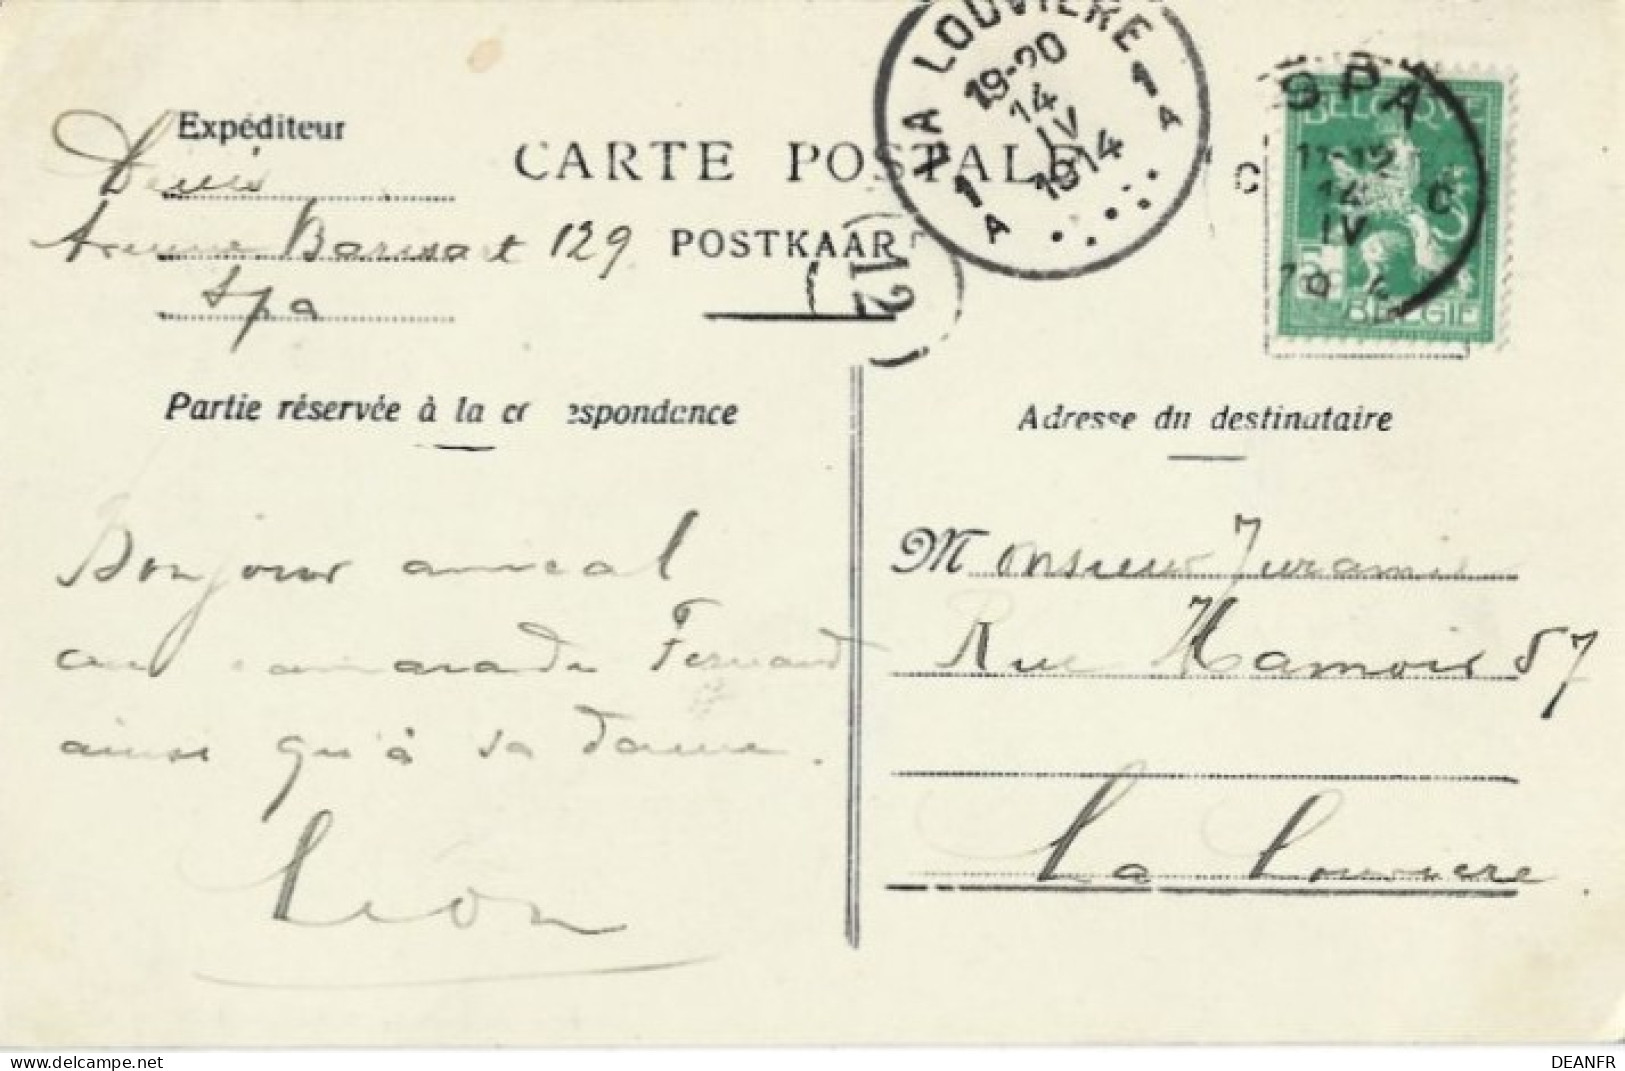 LA LOUVIERE
19-20
14
IV
1914
1 A
1 A
SPA
11-12
14
IV
C C
BELGIQUE
5c
BELGIË
Expéditeur
Denis
Avenue Barisart 129
Spa
CARTE POSTALE
POSTKAAR
12
Partie réservée à la co espondance
Adresse du destinataire
Bonjour amical
au camarade Fernand
ainsi qu'à sa dame.
Léon
Monsieur Juramie
Rue Hamoir 57
La Louvière.
www.delcampe.net
DEANFR